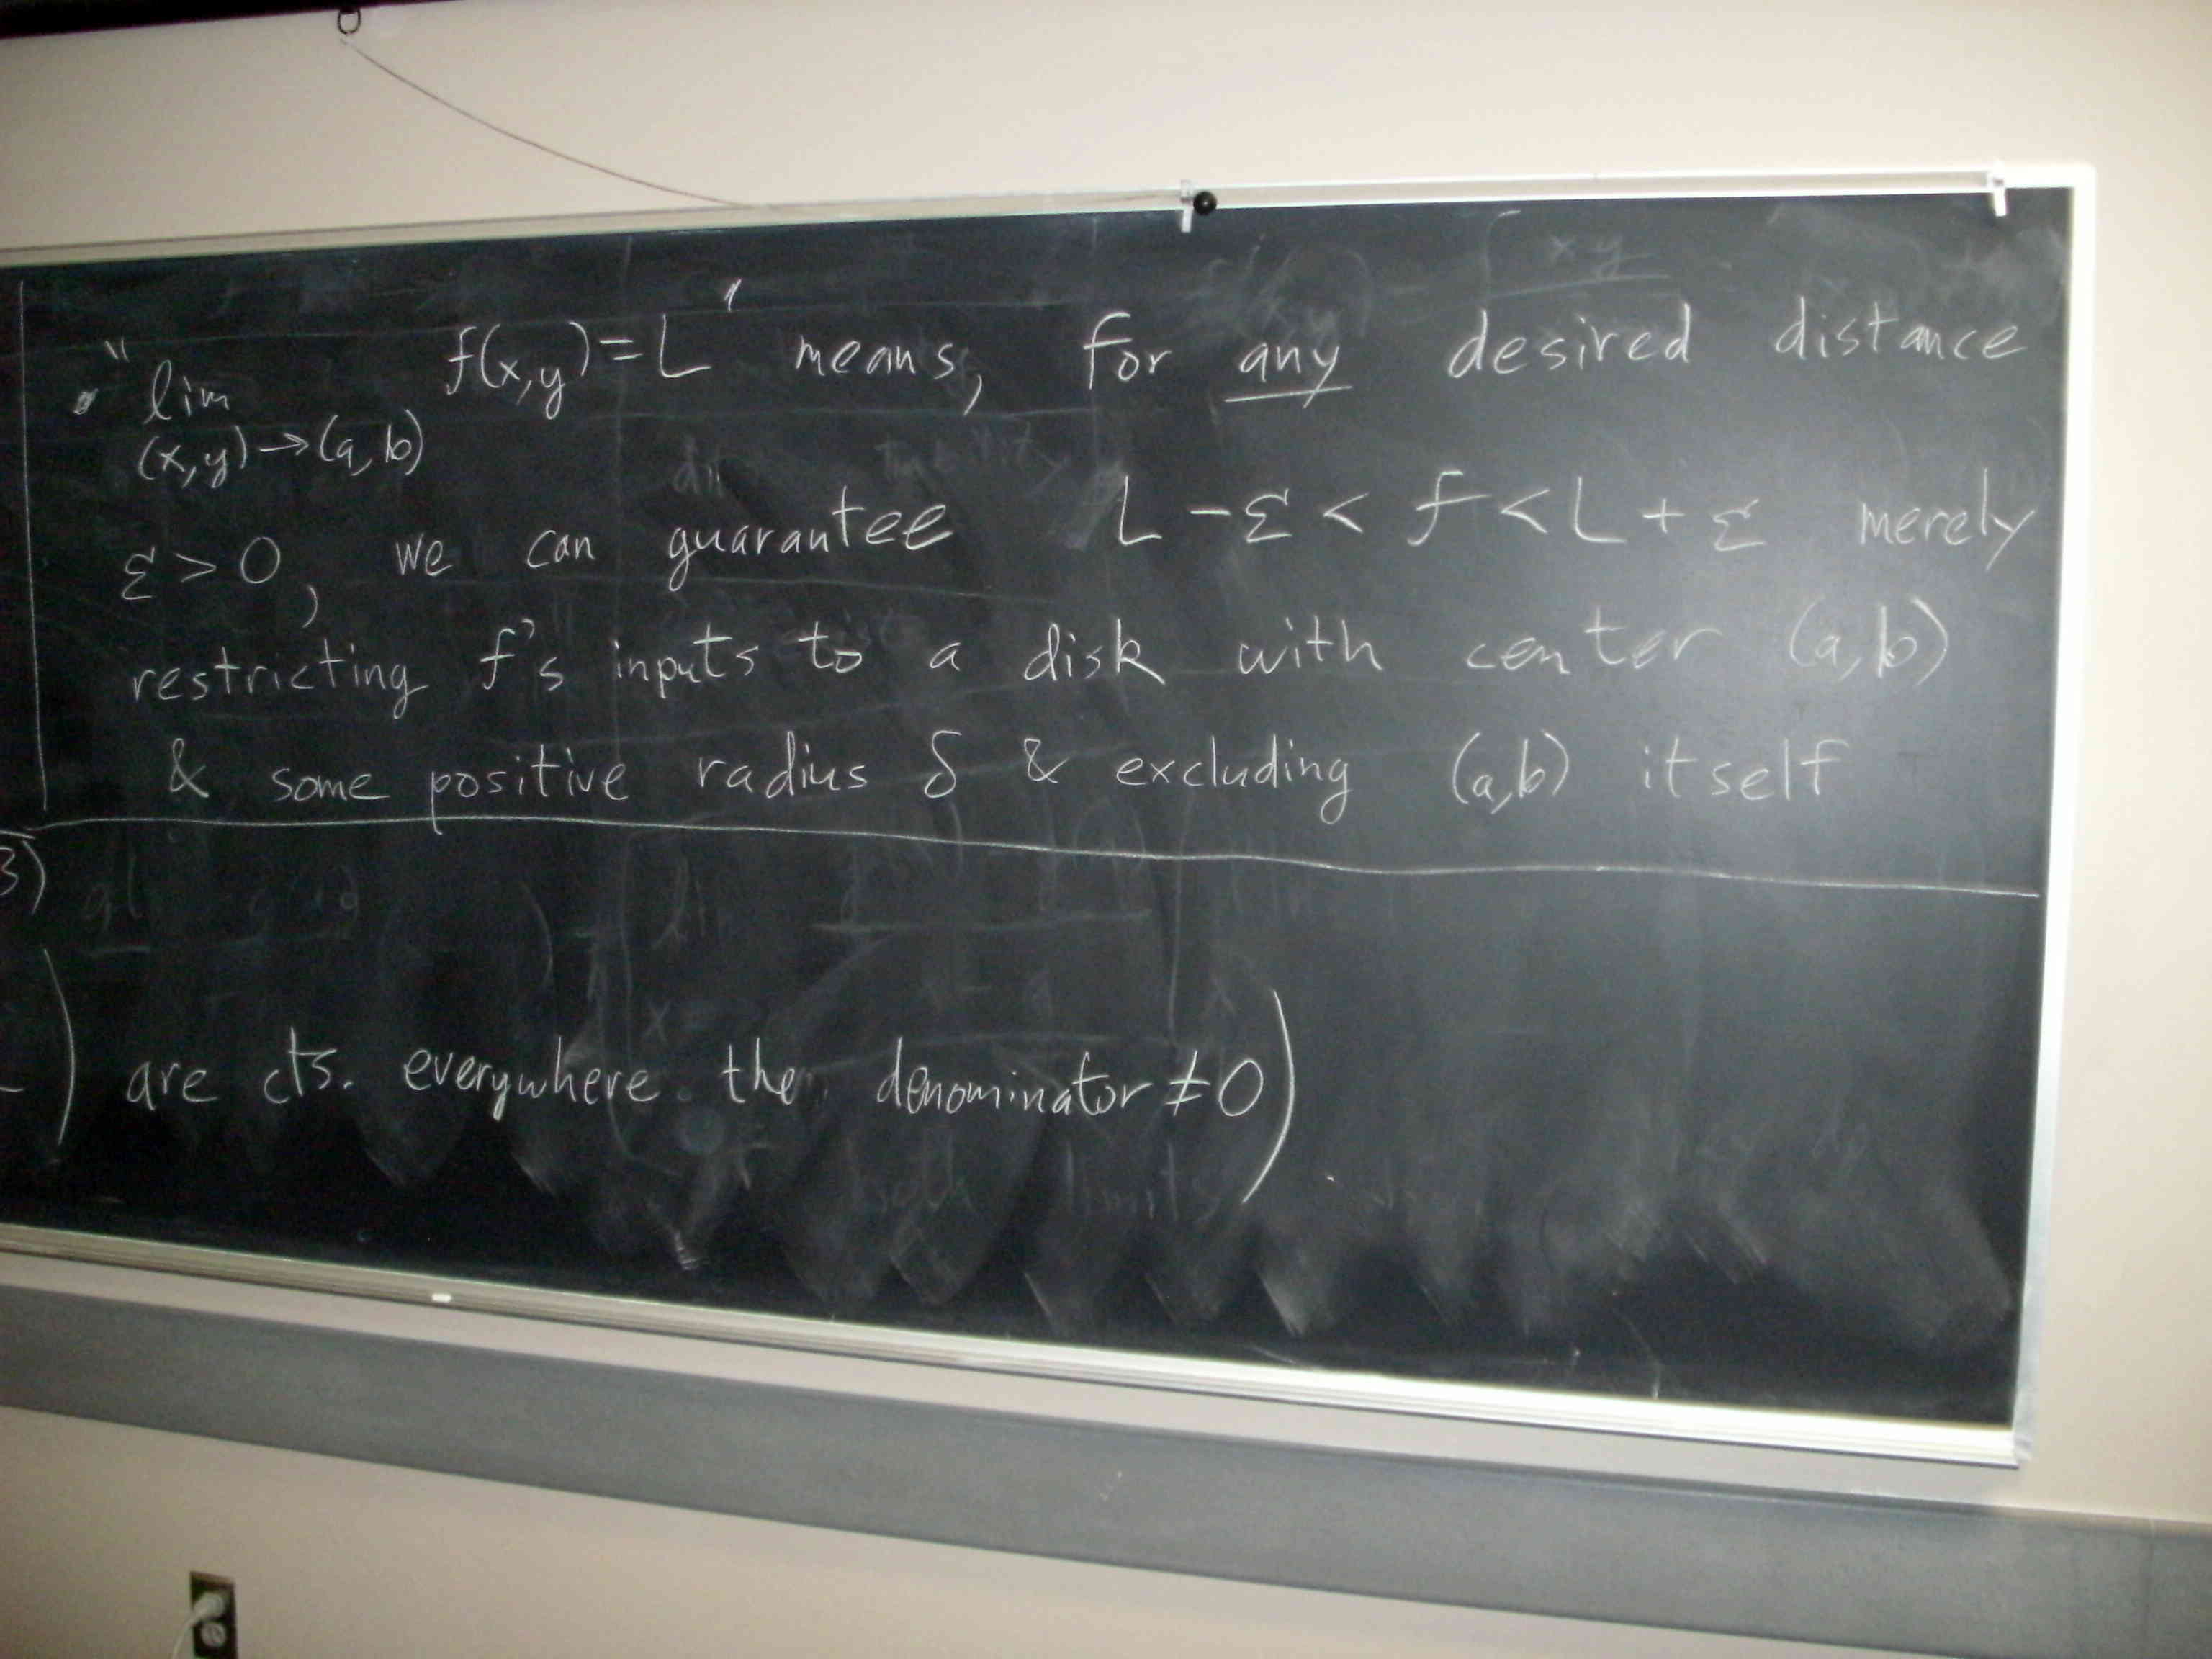 • "lim (x,y)→(a,b) f(x,y)=L" means, for any desired distance
ε>0, we can guarantee L-ε<f<L+ε merely
restricting f's inputs to a disk with center (a,b)
& some positive radius δ & excluding (a,b) itself
3)
) are cts. everywhere the denominator ≠0)